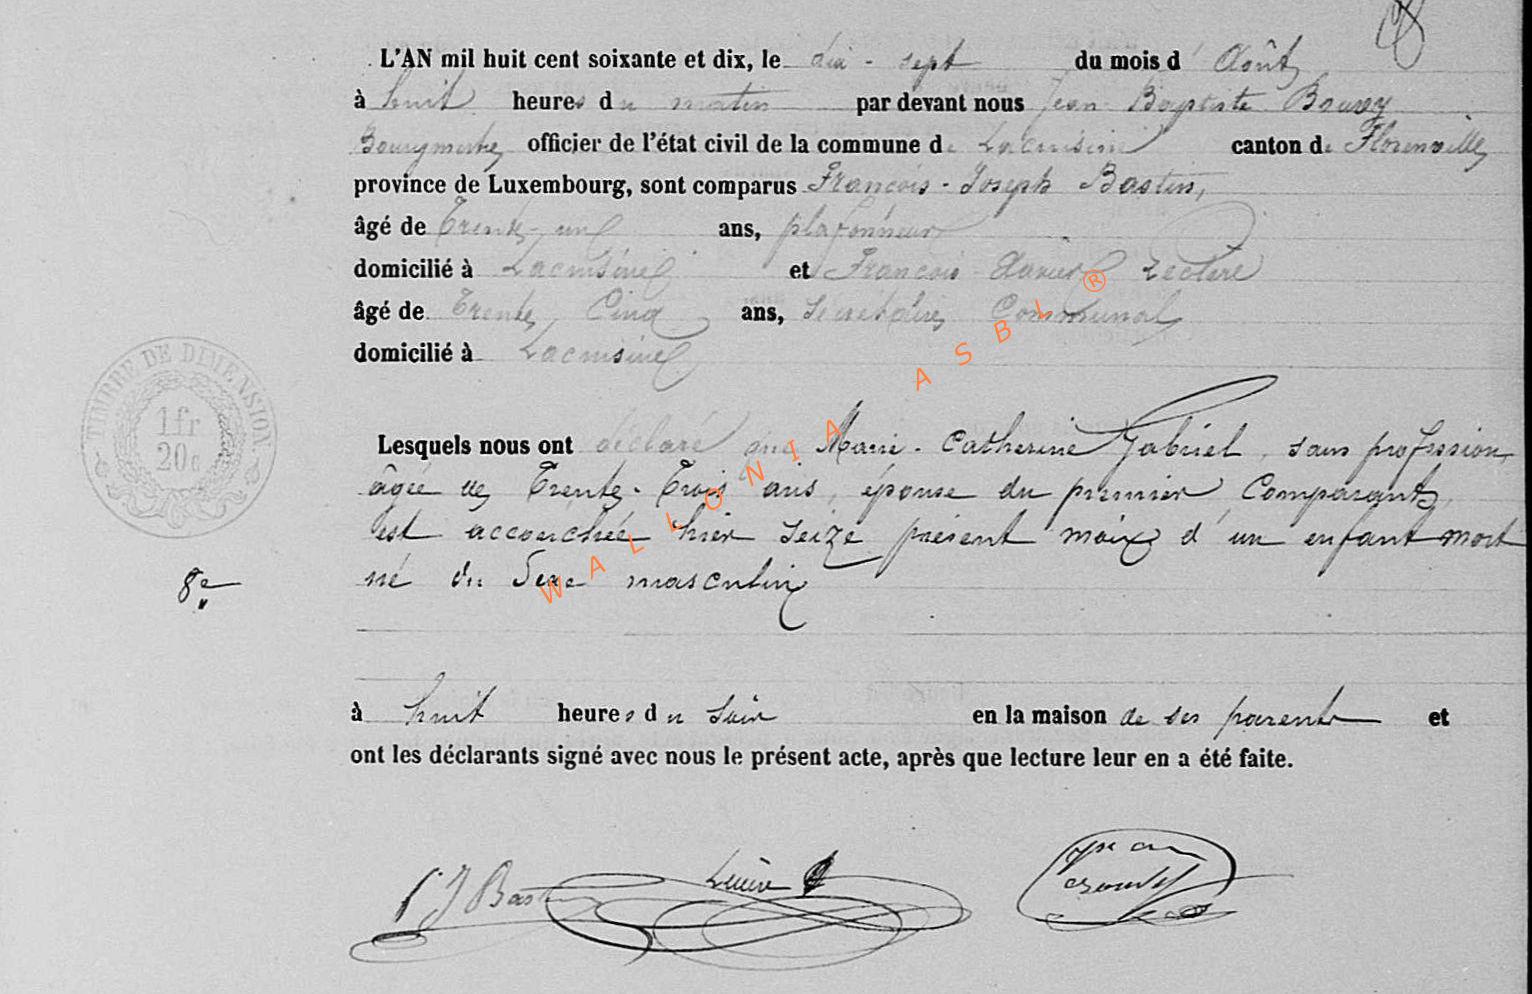 L'AN mil huit cent soixante et dix, le dix-sept du mois d'Août
à huit heures du matin par devant nous Jean Baptiste Bouvy
Bourgmestre officier de l'état civil de la commune de Lacuisine canton de Florenville
province de Luxembourg, sont comparus François-Joseph Bastin,
âgé de Trente-un ans, plafonneur
domicilié à Lacuisine et François Xavier Leclère
âgé de Trente Cinq ans, secrétaire Communal
domicilié à Lacuisine
TIMBRE DE DIMENSION
1fr
20c
Lesquels nous ont déclaré que Marie-Catherine Gabriel, sans profession,
âgée de Trente-Trois ans, épouse du premier Comparant,
est accouchée hier seize présent mois d'un enfant mort
né du Sexe masculin
8e
à huit heures du soir en la maison de ses parents et
ont les déclarants signé avec nous le présent acte, après que lecture leur en a été faite.
F J Bastin
WALLONIA ASBL ®